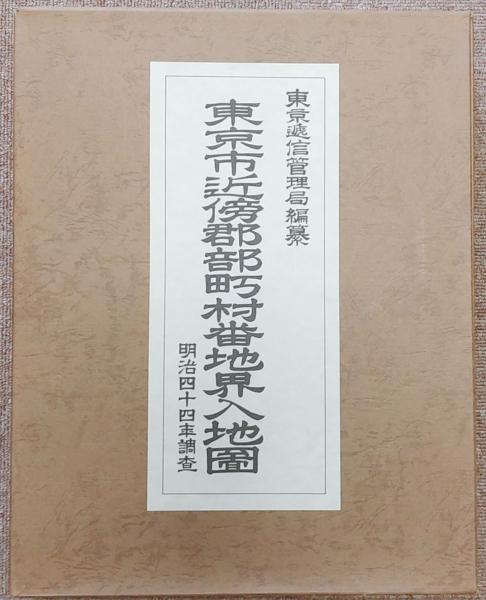 東京逓信管理局編纂
東京市近傍郡部町村番地界入地圖
明治四十四年調査